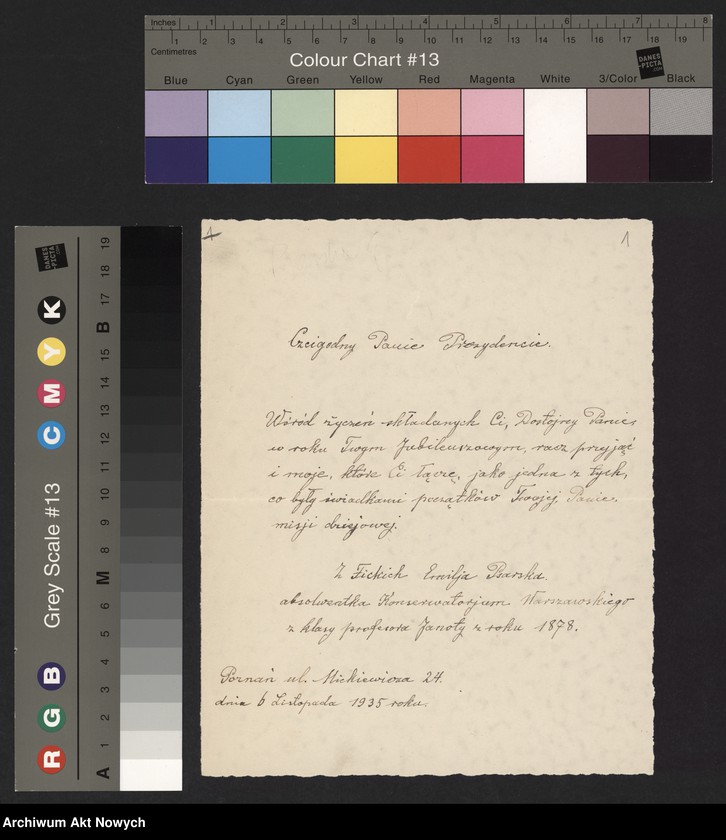 Inches 1 2 3 4 5 6 7 8
Centimetres 1 2 3 4 5 6 7 8 9 10 11 12 13 14 15 16 17 18 19
Colour Chart #13
DANES-PICTA.COM
Blue Cyan Green Yellow Red Magenta White 3/Color Black
Grey Scale #13
DANES-PICTA.COM
R G B C M Y K
A 1 2 3 4 5 6 M 8 9 10 11 12 13 14 15 B 17 18 19
1
1
Czcigodny Panie Prezydencie.
Wśród życzeń składanych Ci, Dostojny Panie,
w roku Twym Jubileuszowym, racz przyjąć
i moje, które Ci łączę, jako jedna z tych,
co były świadkami początków Twojej Panie,
misji dziejowej.
Z Fickich Emilja Psarska
absolwentka Konserwatorjum Warszawskiego
z klasy profesora Janoty z roku 1878.
Poznań ul. Mickiewicza 24.
dnia 6 Listopada 1935 roku.
Archiwum Akt Nowych